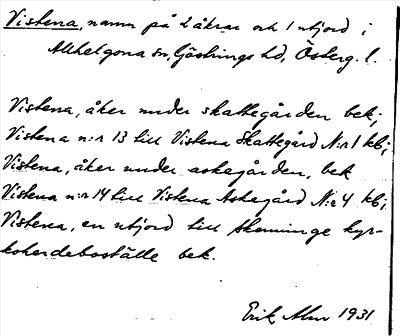 Vistena, namn på 2 åkrar och 1 utjord i
Allhelgona sn, Göstrings hd, Österg. l.
Vistena, åker under skattegården bek;
Vistena n:r 13 till Vistena Skattegård N:r 1 kb;
Vistena, åker under askegården, bek
Vistena n:r 14 till Vistena Askegård N:r 4 kb;
Vistena, en utjord till Skenninge kyr-
koherdeboställe bek.
Erik Alm 1931